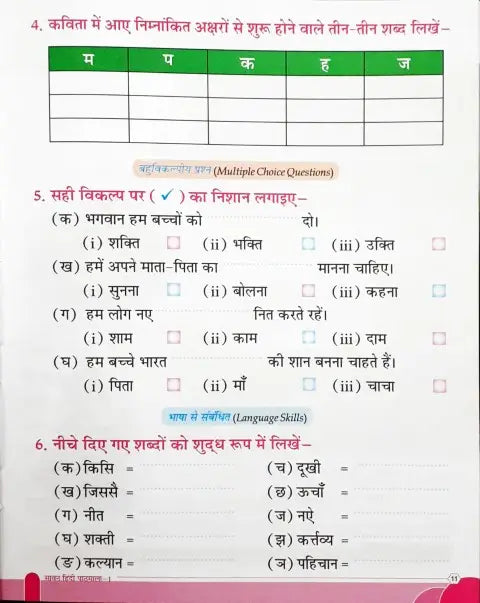 4. कविता में आए निम्नांकित अक्षरों से शुरू होने वाले तीन-तीन शब्द लिखें–
म प क ह ज
बहुविकल्पीय प्रश्न (Multiple Choice Questions)
5. सही विकल्प पर ( ✓ ) का निशान लगाइए–
(क) भगवान हम बच्चों को .................... दो।
(i) शक्ति (ii) भक्ति (iii) उक्ति
(ख) हमें अपने माता-पिता का .................... मानना चाहिए।
(i) सुनना (ii) बोलना (iii) कहना
(ग) हम लोग नए .................... नित करते रहें।
(i) शाम (ii) काम (iii) दाम
(घ) हम बच्चे भारत .................... की शान बनना चाहते हैं।
(i) पिता (ii) माँ (iii) चाचा
भाषा से संबंधित (Language Skills)
6. नीचे दिए गए शब्दों को शुद्ध रूप में लिखें–
(क) किसि = .................... (च) दूखी = ....................
(ख) जिससै = .................... (छ) ऊचाँ = ....................
(ग) नीत = .................... (ज) नऐ = ....................
(घ) शक्ती = .................... (झ) कर्त्तव्य = ....................
(ङ) कल्यान = .................... (ञ) पहिचान = ....................
11